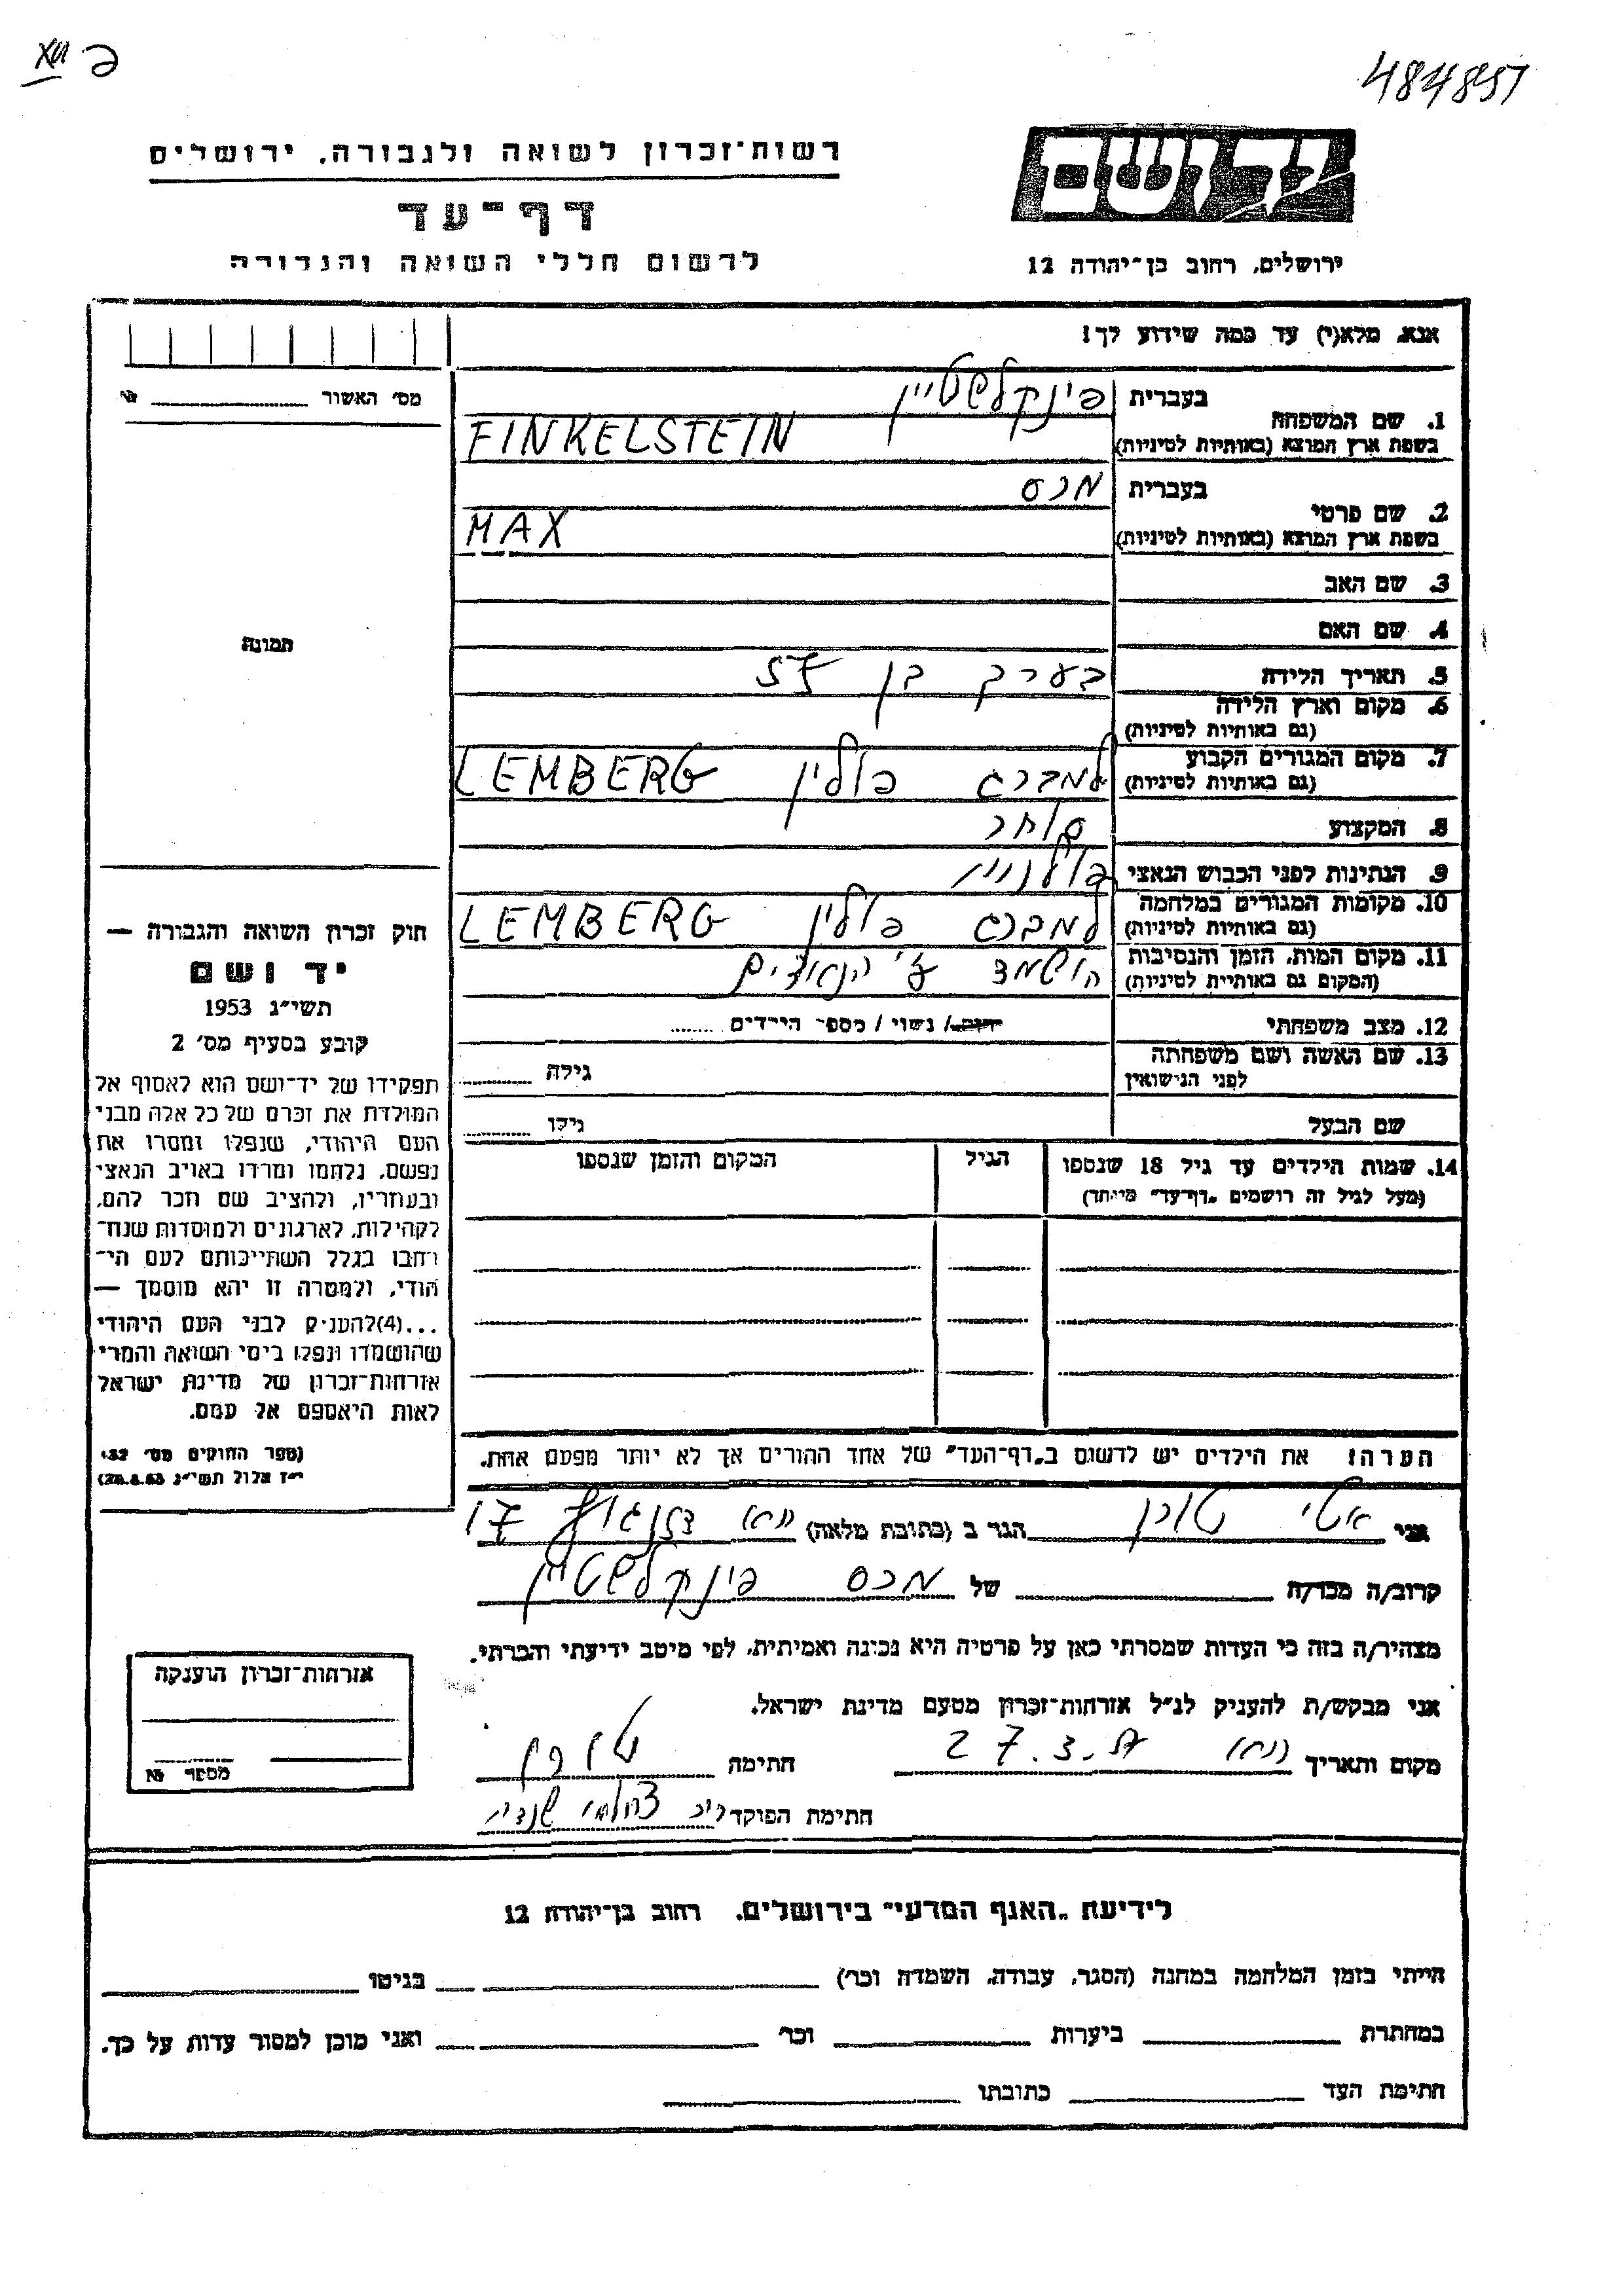 484851
פ XII
יד ושם
ירושלים, רחוב בן־יהודה 12
רשות־זכרון לשואה ולגבורה, ירושלים
דף־עד
לרשום חללי השואה והגבורה
אנא, מלא(י) עד כמה שידוע לך!
מס׳ האשור №
1. שם המשפחה בעברית פינקלשטיין
בשפת ארץ המוצא (באותיות לטיניות) FINKELSTEIN
2. שם פרטי בעברית מכס
בשפת ארץ המוצא (באותיות לטיניות) MAX
3. שם האב
4. שם האם
תמונה
5. תאריך הלידה בערך בן 57
6. מקום וארץ הלידה
(גם באותיות לטיניות)
7. מקום המגורים הקבוע למברג פולין LEMBERG
(גם באותיות לטיניות)
8. המקצוע סוחר
9. הנתינות לפני הכבוש הנאצי
10. מקומות המגורים במלחמה למברג פולין LEMBERG
(גם באותיות לטיניות)
11. מקום המות, הזמן והנסיבות הושמד ע״י הנאצים
(המקום גם באותיות לטיניות)
12. מצב משפחתי רווק / נשוי / מספר הילדים
13. שם האשה ושם משפחתה גילה
לפני הנישואין
שם הבעל גילו
14. שמות הילדים עד גיל 18 שנספו הגיל המקום והזמן שנספו
(מעל לגיל זה רושמים „דף־עד" מיוחד)
חוק זכרון השואה והגבורה —
יד ושם
תשי״ג 1953
קובע בסעיף מס׳ 2
תפקידו של יד־ושם הוא לאסוף אל
המולדת את זכרם של כל אלה מבני
העם היהודי, שנפלו ומסרו את
נפשם, נלחמו ומרדו באויב הנאצי
ובעוזריו, ולהציב שם וזכר להם,
לקהילות, לארגונים ולמוסדות שנח־
רבו בגלל השתייכותם לעם הי־
הודי, ולמטרה זו יהא מוסמך —
...(4) להעניק לבני העם היהודי
שהושמדו ונפלו בימי השואה והמרי
אזרחות־זכרון של מדינת ישראל
לאות היאספם אל עמם.
(ספר החוקים מס׳ 132
י״ז אלול תשי״ג 28.8.53)
הערה! את הילדים יש לרשום ב„דף־העד" של אחד ההורים אך לא יותר מפעם אחת.
אני אטי טורן הגר ב (כתובת מלאה) 17
קרוב/ה מכר/ה של מכס פינקלשטיין
מצהיר/ה בזה כי העדות שמסרתי כאן על פרטיה היא נכונה ואמיתית, לפי מיטב ידיעתי והכרתי.
אני מבקש/ת להעניק לנ״ל אזרחות־זכרון מטעם מדינת ישראל.
מקום ותאריך 27.3.57 חתימה טורן
חתימת הפוקד
אזרחות־זכרון הוענקה
מספר №
לידיעת „האגף המדעי" בירושלים, רחוב בן־יהודה 12
הייתי בזמן המלחמה במחנה (הסגר, עבודה, השמדה וכו׳) בגיטו
במחתרת ביערות וכו׳ ואני מוכן למסור עדות על כך.
חתימת העד כתובתו